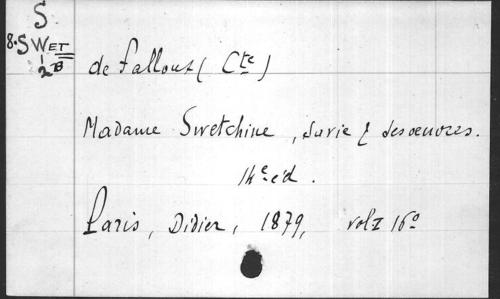 S
8. SWET
1/2 B
de Falloux (Cte)
Madame Swetchine, sa vie & ses oeuvres.
14e éd.
Paris, Didier, 1879, vol I 16º